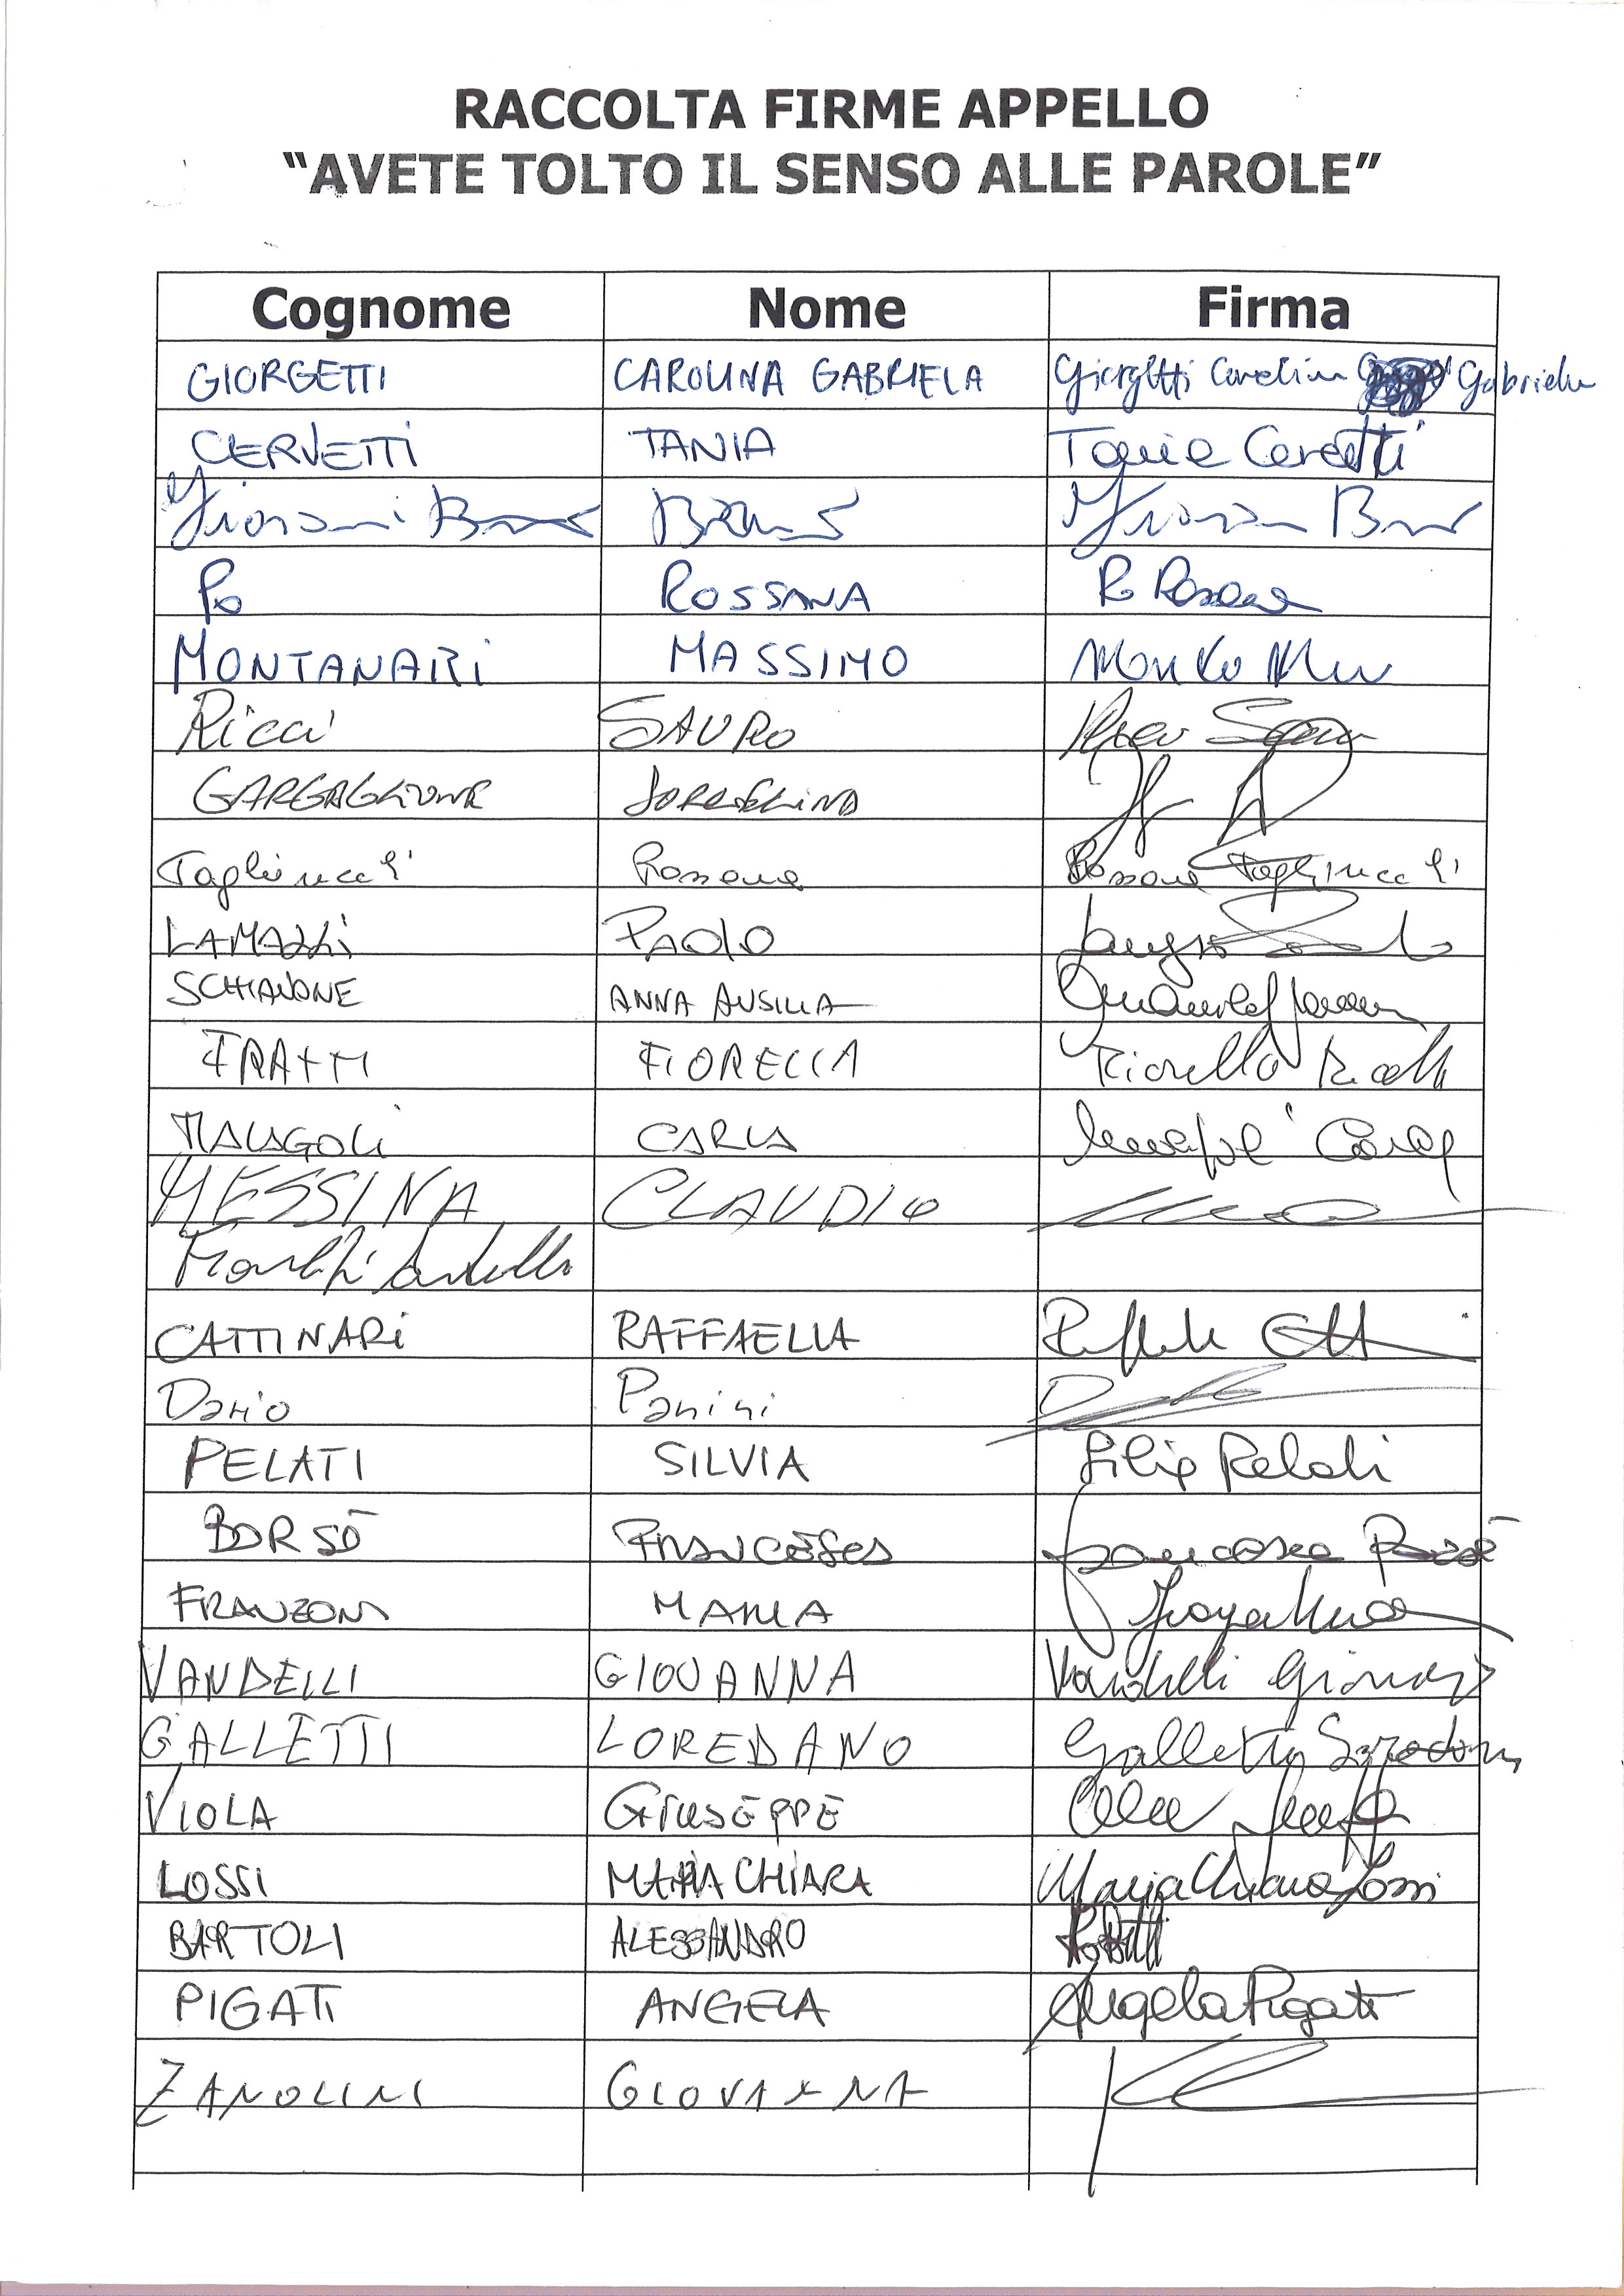 RACCOLTA FIRME APPELLO
“AVETE TOLTO IL SENSO ALLE PAROLE”
Cognome Nome Firma
GIORGETTI CAROLINA GABRIELA Giorgetti Carolina Gabriela
CERVETTI TANIA Tania Cervetti
Giovanni
Po ROSSANA Po Rossana
MONTANARI MASSIMO
Ricci SAURO Ricci Sauro
GARGAGLIONE
Tagliazucchi Rossana Rossana Tagliazucchi
PAOLO
SCHIAVONE ANNA AUSILIA
FRATTI FIORELLA Fiorella
MALAGOLI CARLA Carla
MESSINA CLAUDIO
CATTINARI RAFFAELLA
Dario Panini
PELATI SILVIA Silvia Pelati
BORSÒ FRANCESCA Francesca
FRANZONI MARIA
VANDELLI GIOVANNA Vandelli Giovanna
GALLETTI LOREDANO Galletti Loredano
VIOLA GIUSEPPE
LOSSI MARIA CHIARA Maria Chiara Lossi
BARTOLI ALESSANDRO
PIGATI ANGELA Angela Pigati
ZANOLINI GIOVANNA